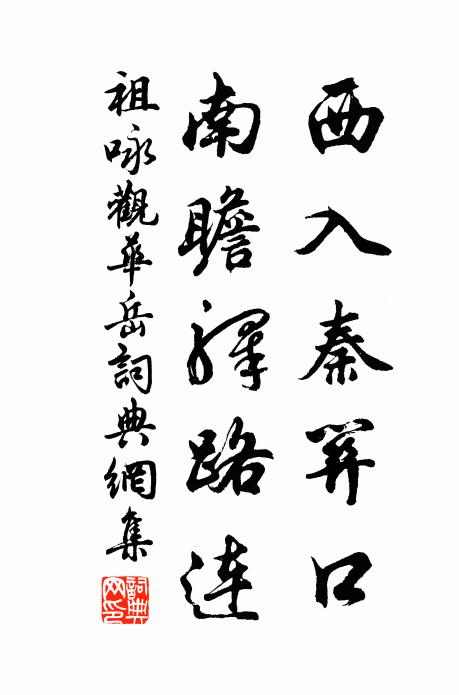 西入秦關口
南瞻驛路連
祖咏觀華岳詞典網集
詞典网印